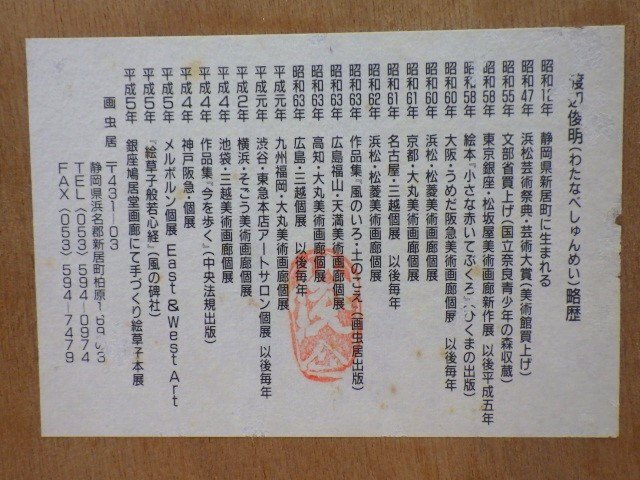 俊明(わたなべしゅんめい)略歴
昭和12年 静岡県新居町に生まれる
昭和47年 浜松芸術祭典・芸術大賞(美術館買上げ)
昭和55年 文部省買上げ(国立奈良青少年の森収蔵)
昭和58年 東京銀座・松坂屋美術画廊新作展 以後平成五年
昭和58年 絵本『小さな赤いてぶくろ』(ひくまの出版)
昭和60年 大阪・うめだ阪急美術画廊個展 以後毎年
昭和60年 浜松・松菱美術画廊個展
昭和61年 京都・大丸美術画廊個展 以後毎年
昭和61年 名古屋・三越個展 以後毎年
昭和62年 浜松・松菱美術画廊個展
昭和63年 作品集『風のいろ・土のこえ』(画虫居出版)
昭和63年 広島福山・天満美術画廊個展
昭和63年 高知・大丸美術画廊個展
昭和63年 広島・三越個展 以後毎年
平成元年 九州福岡・大丸美術画廊個展
平成元年 渋谷・東急本店アートサロン個展 以後毎年
平成2年 横浜・そごう美術画廊個展
平成4年 池袋・三越美術画廊個展
平成4年 作品集『今を歩く』(中央法規出版)
平成4年 神戸阪急・個展
平成5年 メルボルン個展 East & West Art
平成5年 『絵草子般若心経』(風の碑社)
平成5年 銀座鳩居堂画廊にて手づくり絵草子本展
画虫居 〒431-03
静岡県浜名郡新居町柏原
TEL(053)594-0974
FAX(053)594-7479